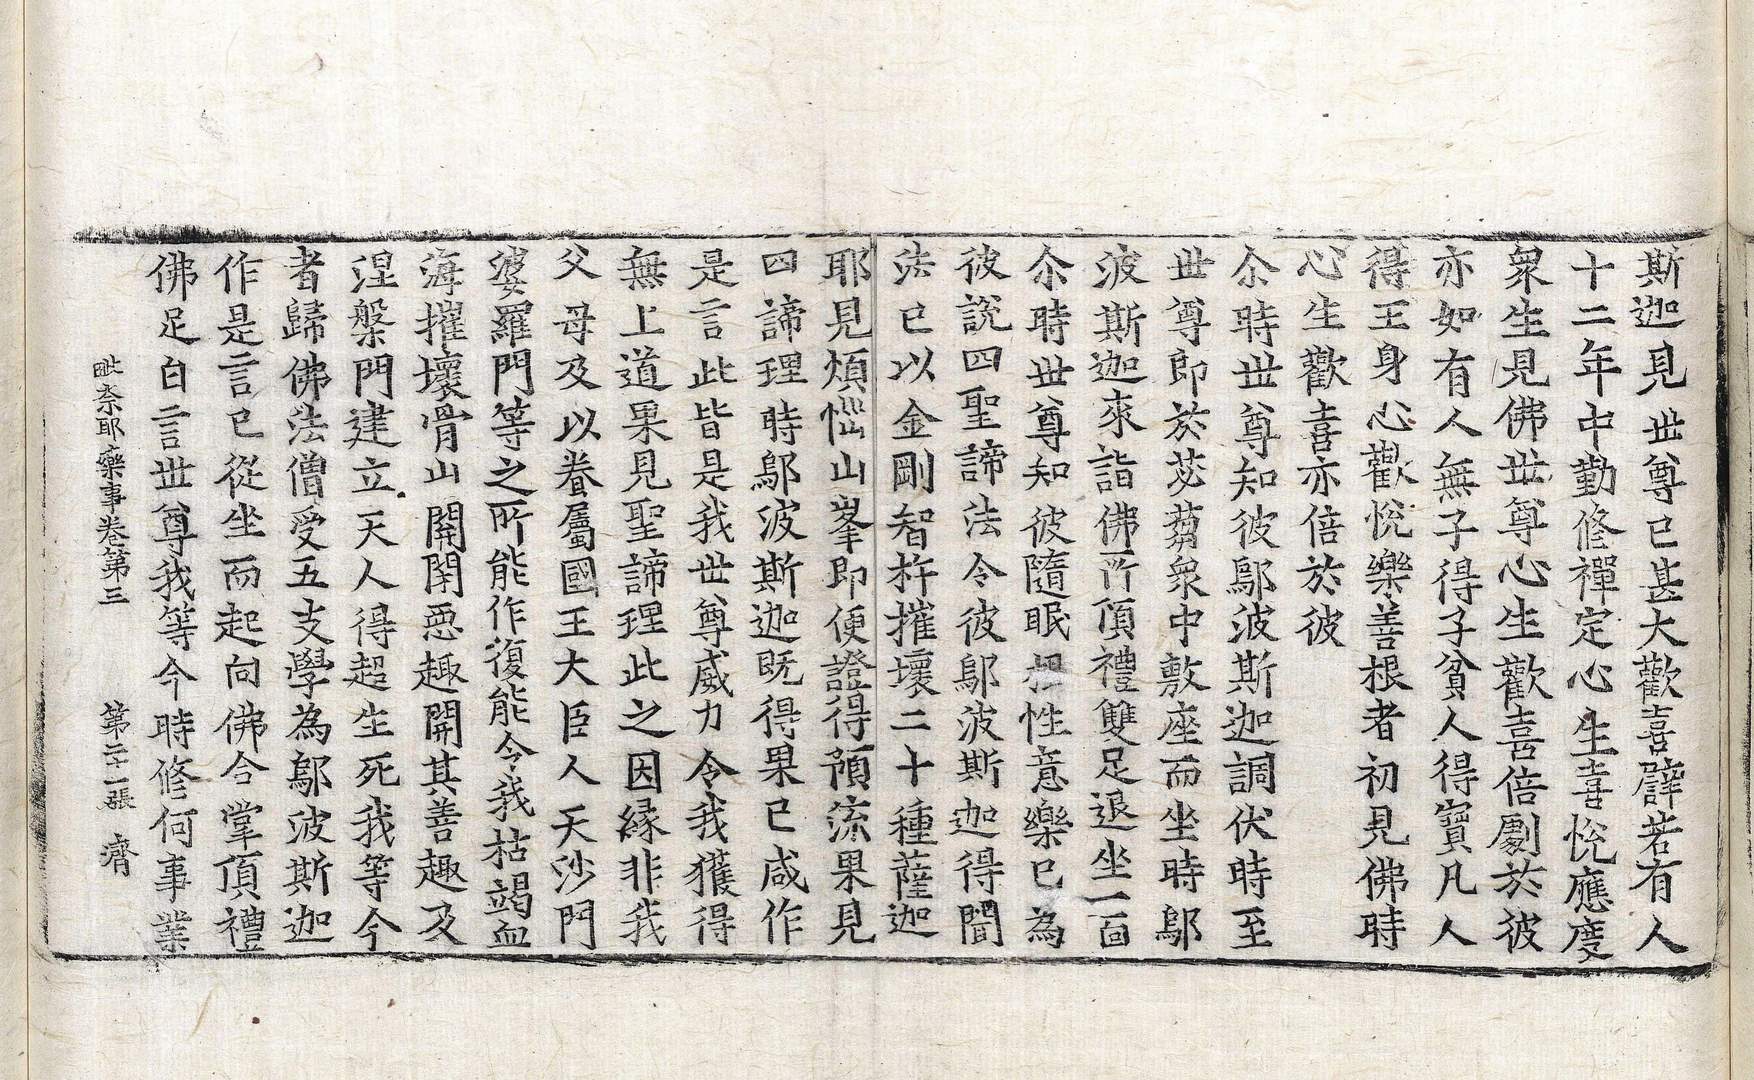 斯迦見世尊已甚大歡喜譬若有人
十二年中勤修禪定心生喜悅應度
衆生見佛世尊心生歡喜倍劇於彼
亦如有人無子得子貧人得寶凡人
得王身心歡悅樂善根者初見佛時
心生歡喜亦倍於彼
尒時世尊知彼鄔波斯迦調伏時至
世尊即於苾芻衆中敷座而坐時鄔
波斯迦來詣佛所頂禮雙足退坐一面
尒時世尊知彼隨眠根性意樂已為
彼說四聖諦法令彼鄔波斯迦得聞
法已以金剛智杵摧壞二十種薩迦
耶見煩惱山峯即便證得預流果見
四諦理時鄔波斯迦既得果已咸作
是言此皆是我世尊威力令我獲得
無上道果見聖諦理此之因縁非我
父母及以眷屬國王大臣人天沙門
婆羅門等之所能作復能令我枯竭血
海摧壞骨山開閇惡趣開其善趣及
涅槃門建立天人得超生死我等今
者歸佛法僧受五支學為鄔波斯迦
作是言已從坐而起向佛合掌頂禮
佛足白言世尊我等今時修何事業
毗奈耶藥事卷第三 第二十一張 濟